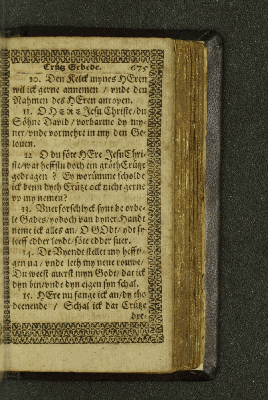 Crütz Gebede. 675
10. Den Kelck mynes HEren
wil ick gerne annemen / vnde den
Nahmen des HEren anropen.
11. O HERE Jesu Christe / du
Söhne David / vorbarme dy my-
ner / vnde vormehre in my den Ge-
louen.
12 O du söte HEre Jesu Chri-
ste / wat hefftu doch ein groth Crütz
gedragen ? Ey worümme scholde
ick denn dyn Crütz ock nicht gerne
vp my nemen?
13. Vnerforschlyck synt de orde-
le Gades / yodoch van dyner Handt
neme ick alles an / O GOdt / ydt sy
leeff edder leydt / söte edder suer.
14. De Vyendt stellet my hefft-
gen na / vnde leth my nene rouwe.
Du weest auerst myn Godt / dat ick
dyn bin / vnde dyn eigen syn schal.
15. HEre nu fange ick an / dy tho
deenende / Schal ick dat Crütze